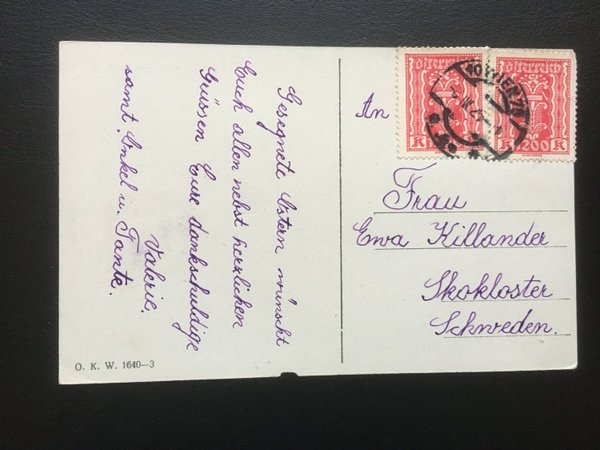 Gesegnete Ostern wünscht
Euch allen nebst herzlichen
Grüssen Eure dankschuldige
Valerie,
samt Onkel u. Tante.
O. K. W. 1640—3
Österreich
Österreich
K
200 K
WIEN
An
Frau
Ewa Killander
Skokloster
Schweden.